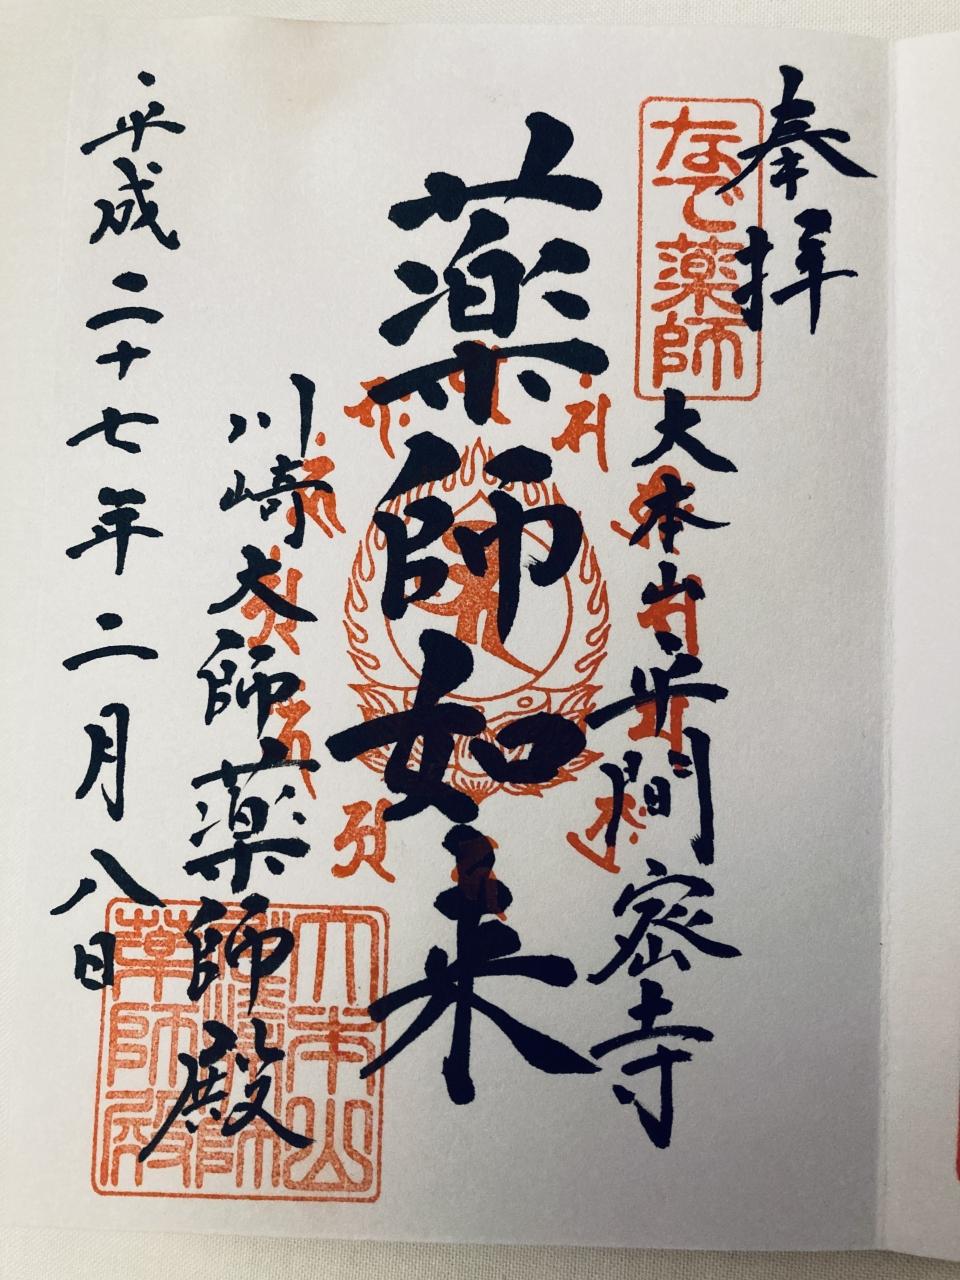 奉拝
なで薬師
大本山平間密寺
薬師如来
川崎大師薬師殿
平成二十七年二月八日
大本山
薬師殿